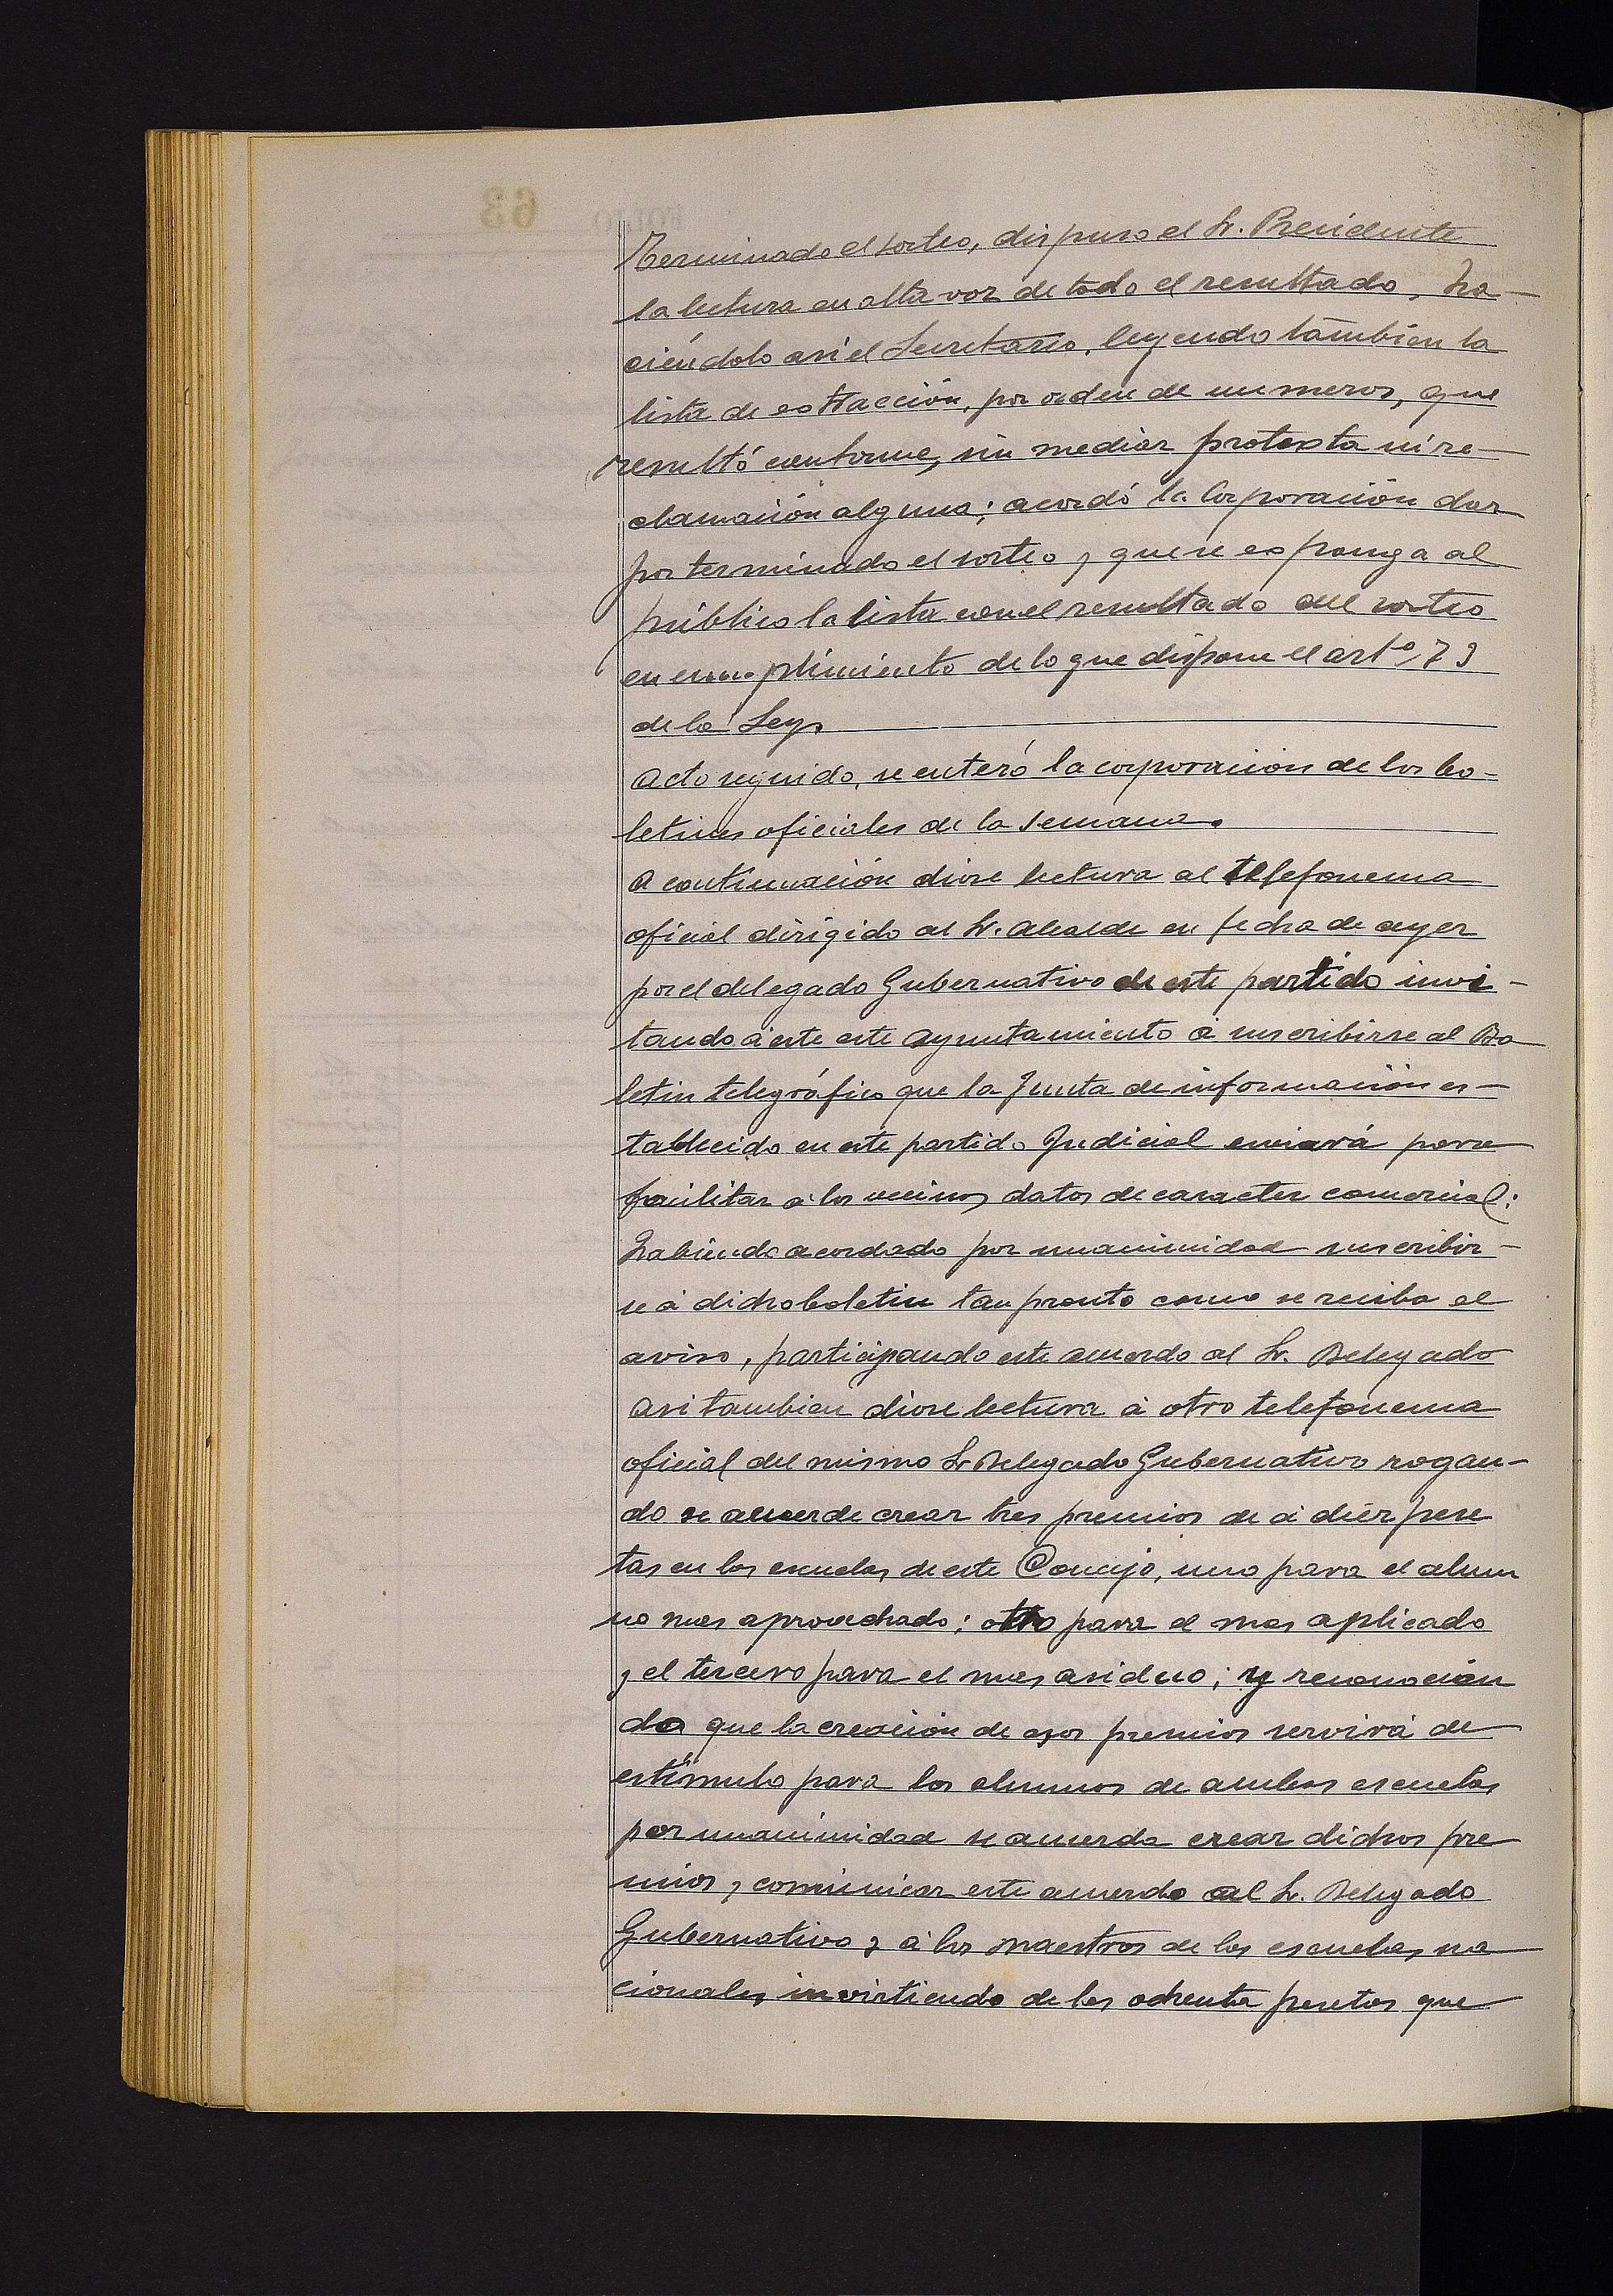 Terminado el sorteo, dispuso el Sr. Presidente
la lectura en alta voz de todo el resultado, ha-
ciéndolo asi el Secretario, leyendo también la
lista de extracción, por orden de numeros, que
resultó conforme, sin mediar protexta ni re-
clamación alguna; acordó la Corporación dar
por terminado el sorteo y que se exponga al
público la lista con el resultado del sorteo
en cumplimiento de lo que dispone el artº 79
de la Ley.
Acto seguido, se enteró la corporación de los bo-
letines oficiales de la semana.
A continuación diose lectura al telefonema
oficial dirigido al Sr. Alcalde en fecha de ayer
por el delegado Gubernativo de este partido invi-
tando á este este Ayuntamiento á suscribirse al Bo
letin telegráfico que la Junta de información es-
tablecida en este partido Judicial enviará para
facilitar á los vecinos datos de caracter comercial:
Habiendo acordado por unanimidad suscribir-
se á dicho boletin tan pronto como se reciba el
aviso, participando este acuerdo al Sr. Delegado
Asi tambien diose lectura á otro telefonema
oficial del mismo Sr Delegado Gubernativo rogan-
do se acuerde crear tres premios de á diez pese
tas en las escuelas de este Concejo, uno para el alum
no mas aprovechado; otro para el mas aplicado
y el tercero para el mas asiduo; y reconocien
do que la creación de esos premios servirá de
estímulo para los alumnos de ambas escuelas
por unanimidad se acuerda crear dichos pre
mios y comunicar este acuerdo al Sr. Delegado
Gubernativo y á los maestros de las escuelas na
cionales, invirtiendo de las ochenta pesetas que
63
FOLIO